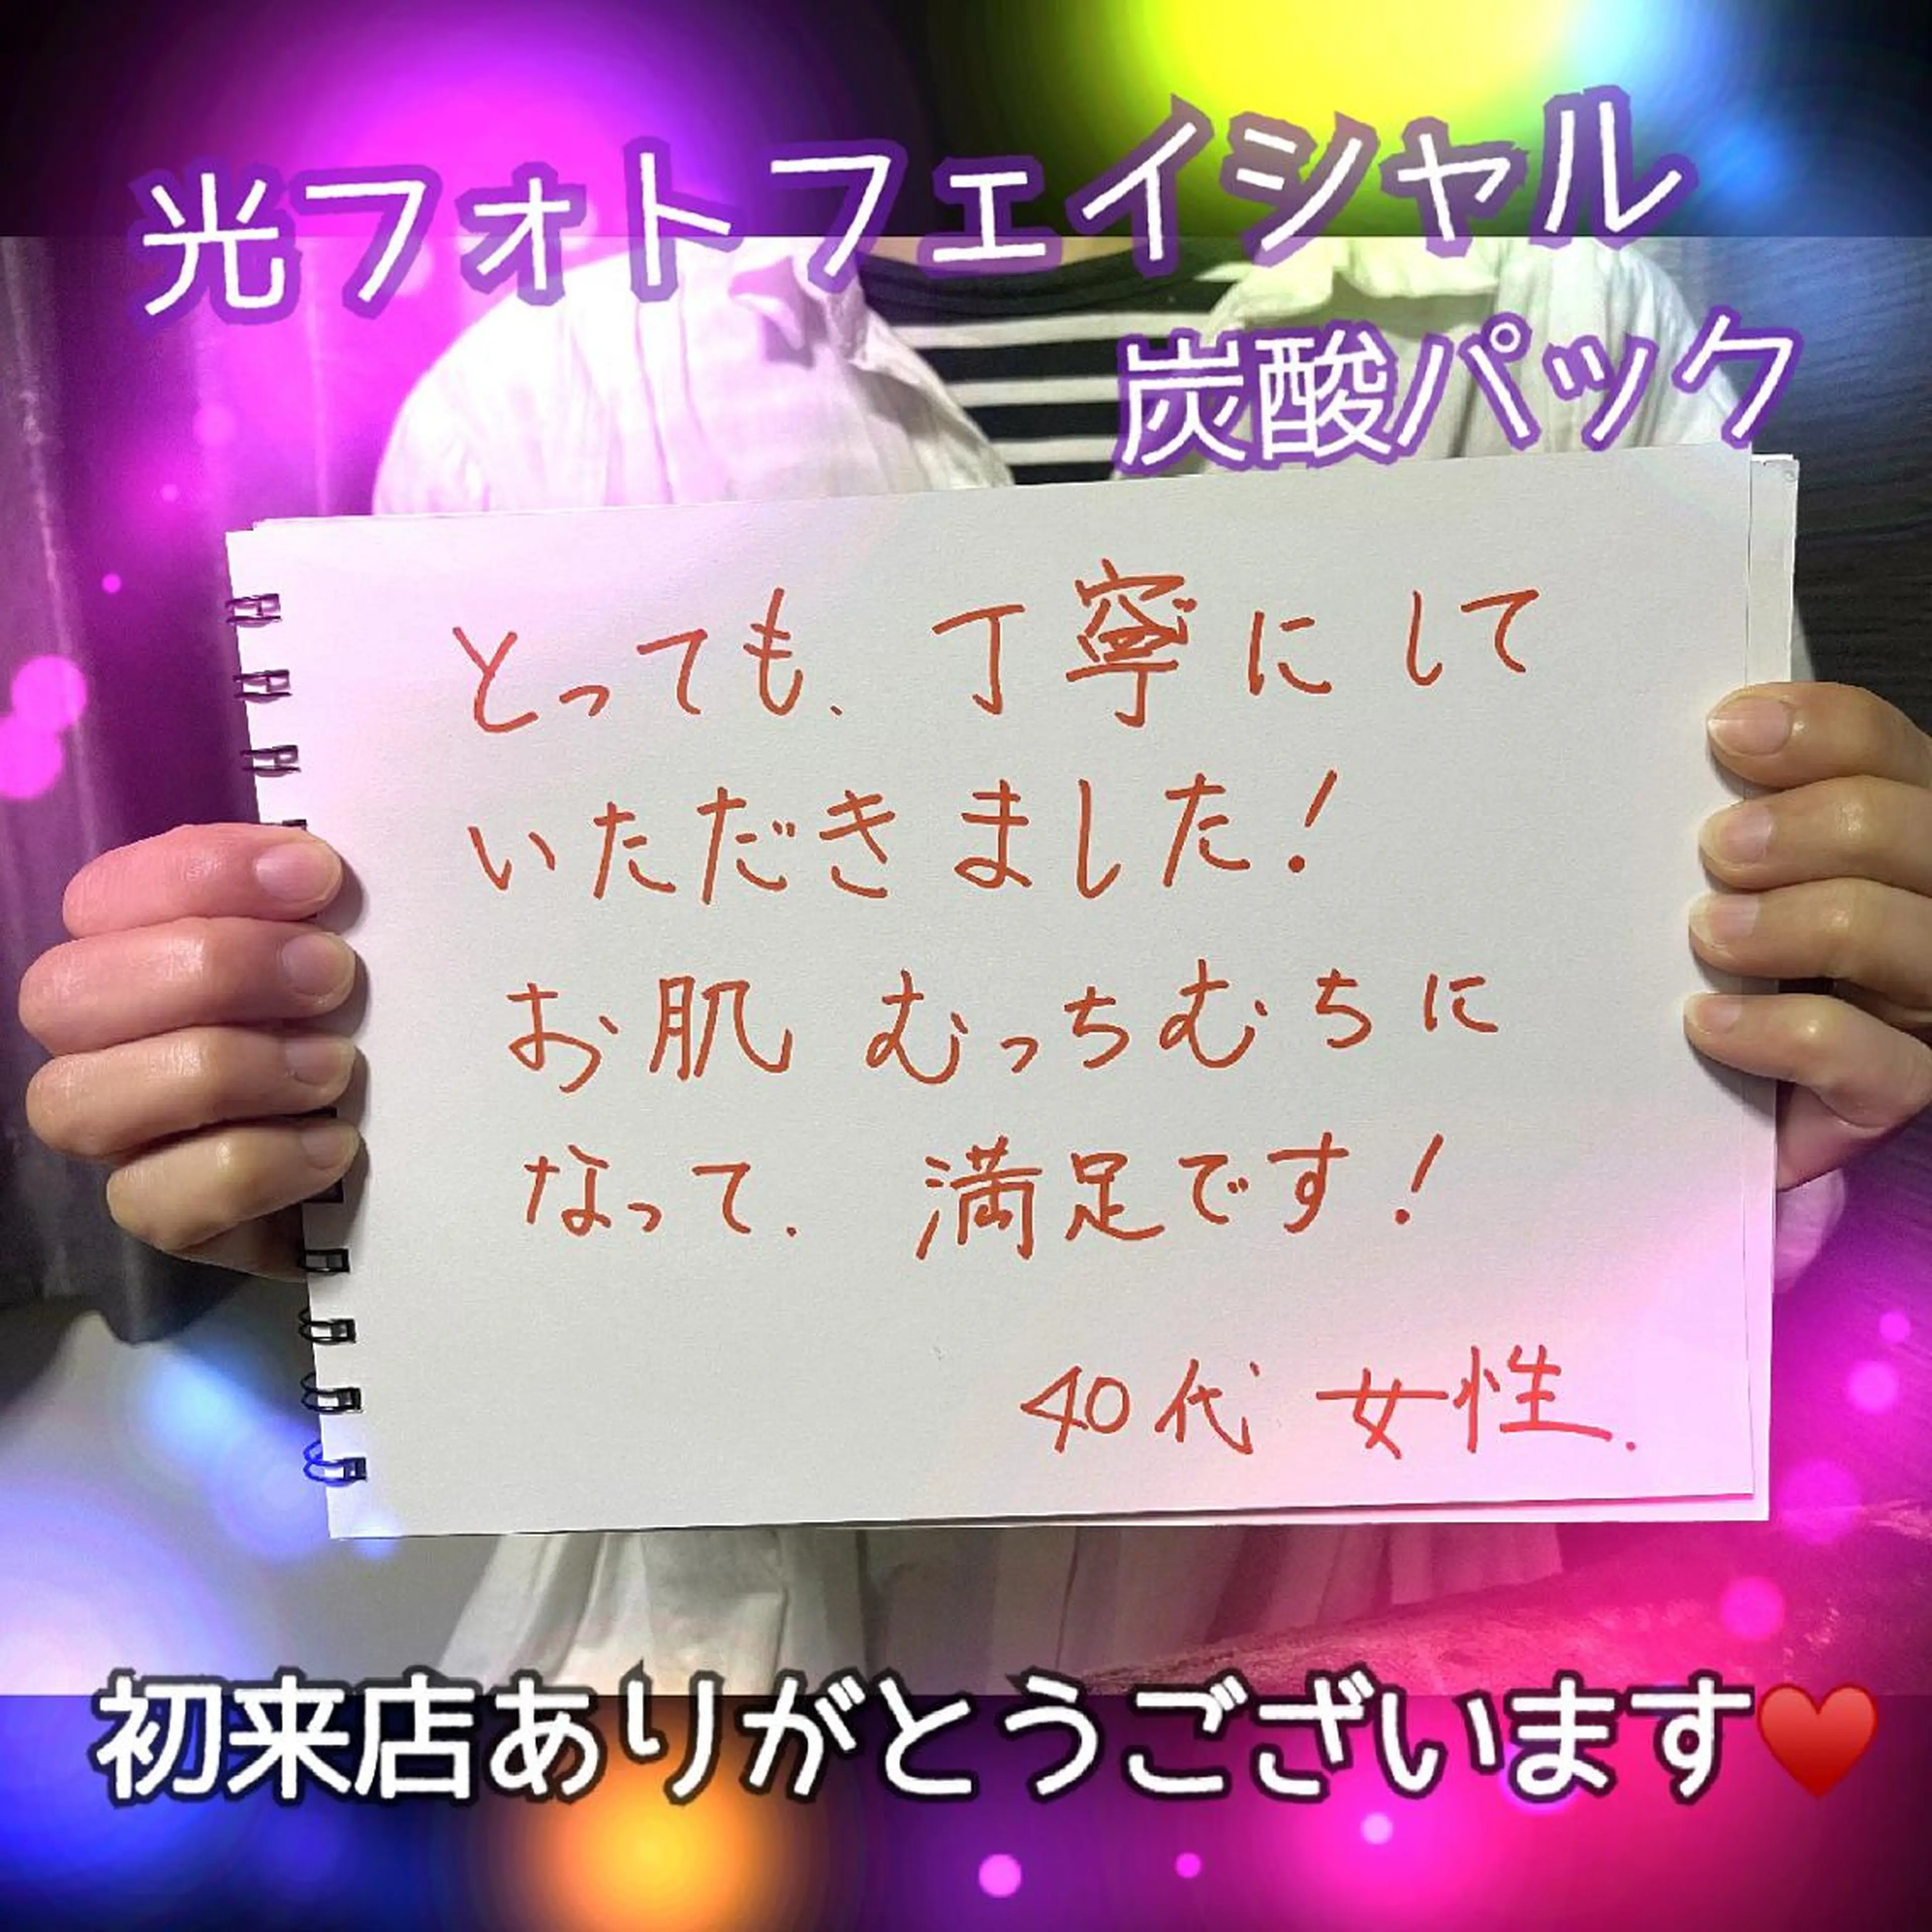 光フォトフェイシャル
炭酸パック
とっても、丁寧にして
いただきました!
お肌むっちむちに
なって、満足です!
40代 女性.
初来店ありがとうございます♥